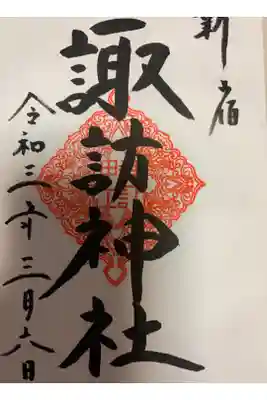 新宿
諏訪神社
令和三年三月六日